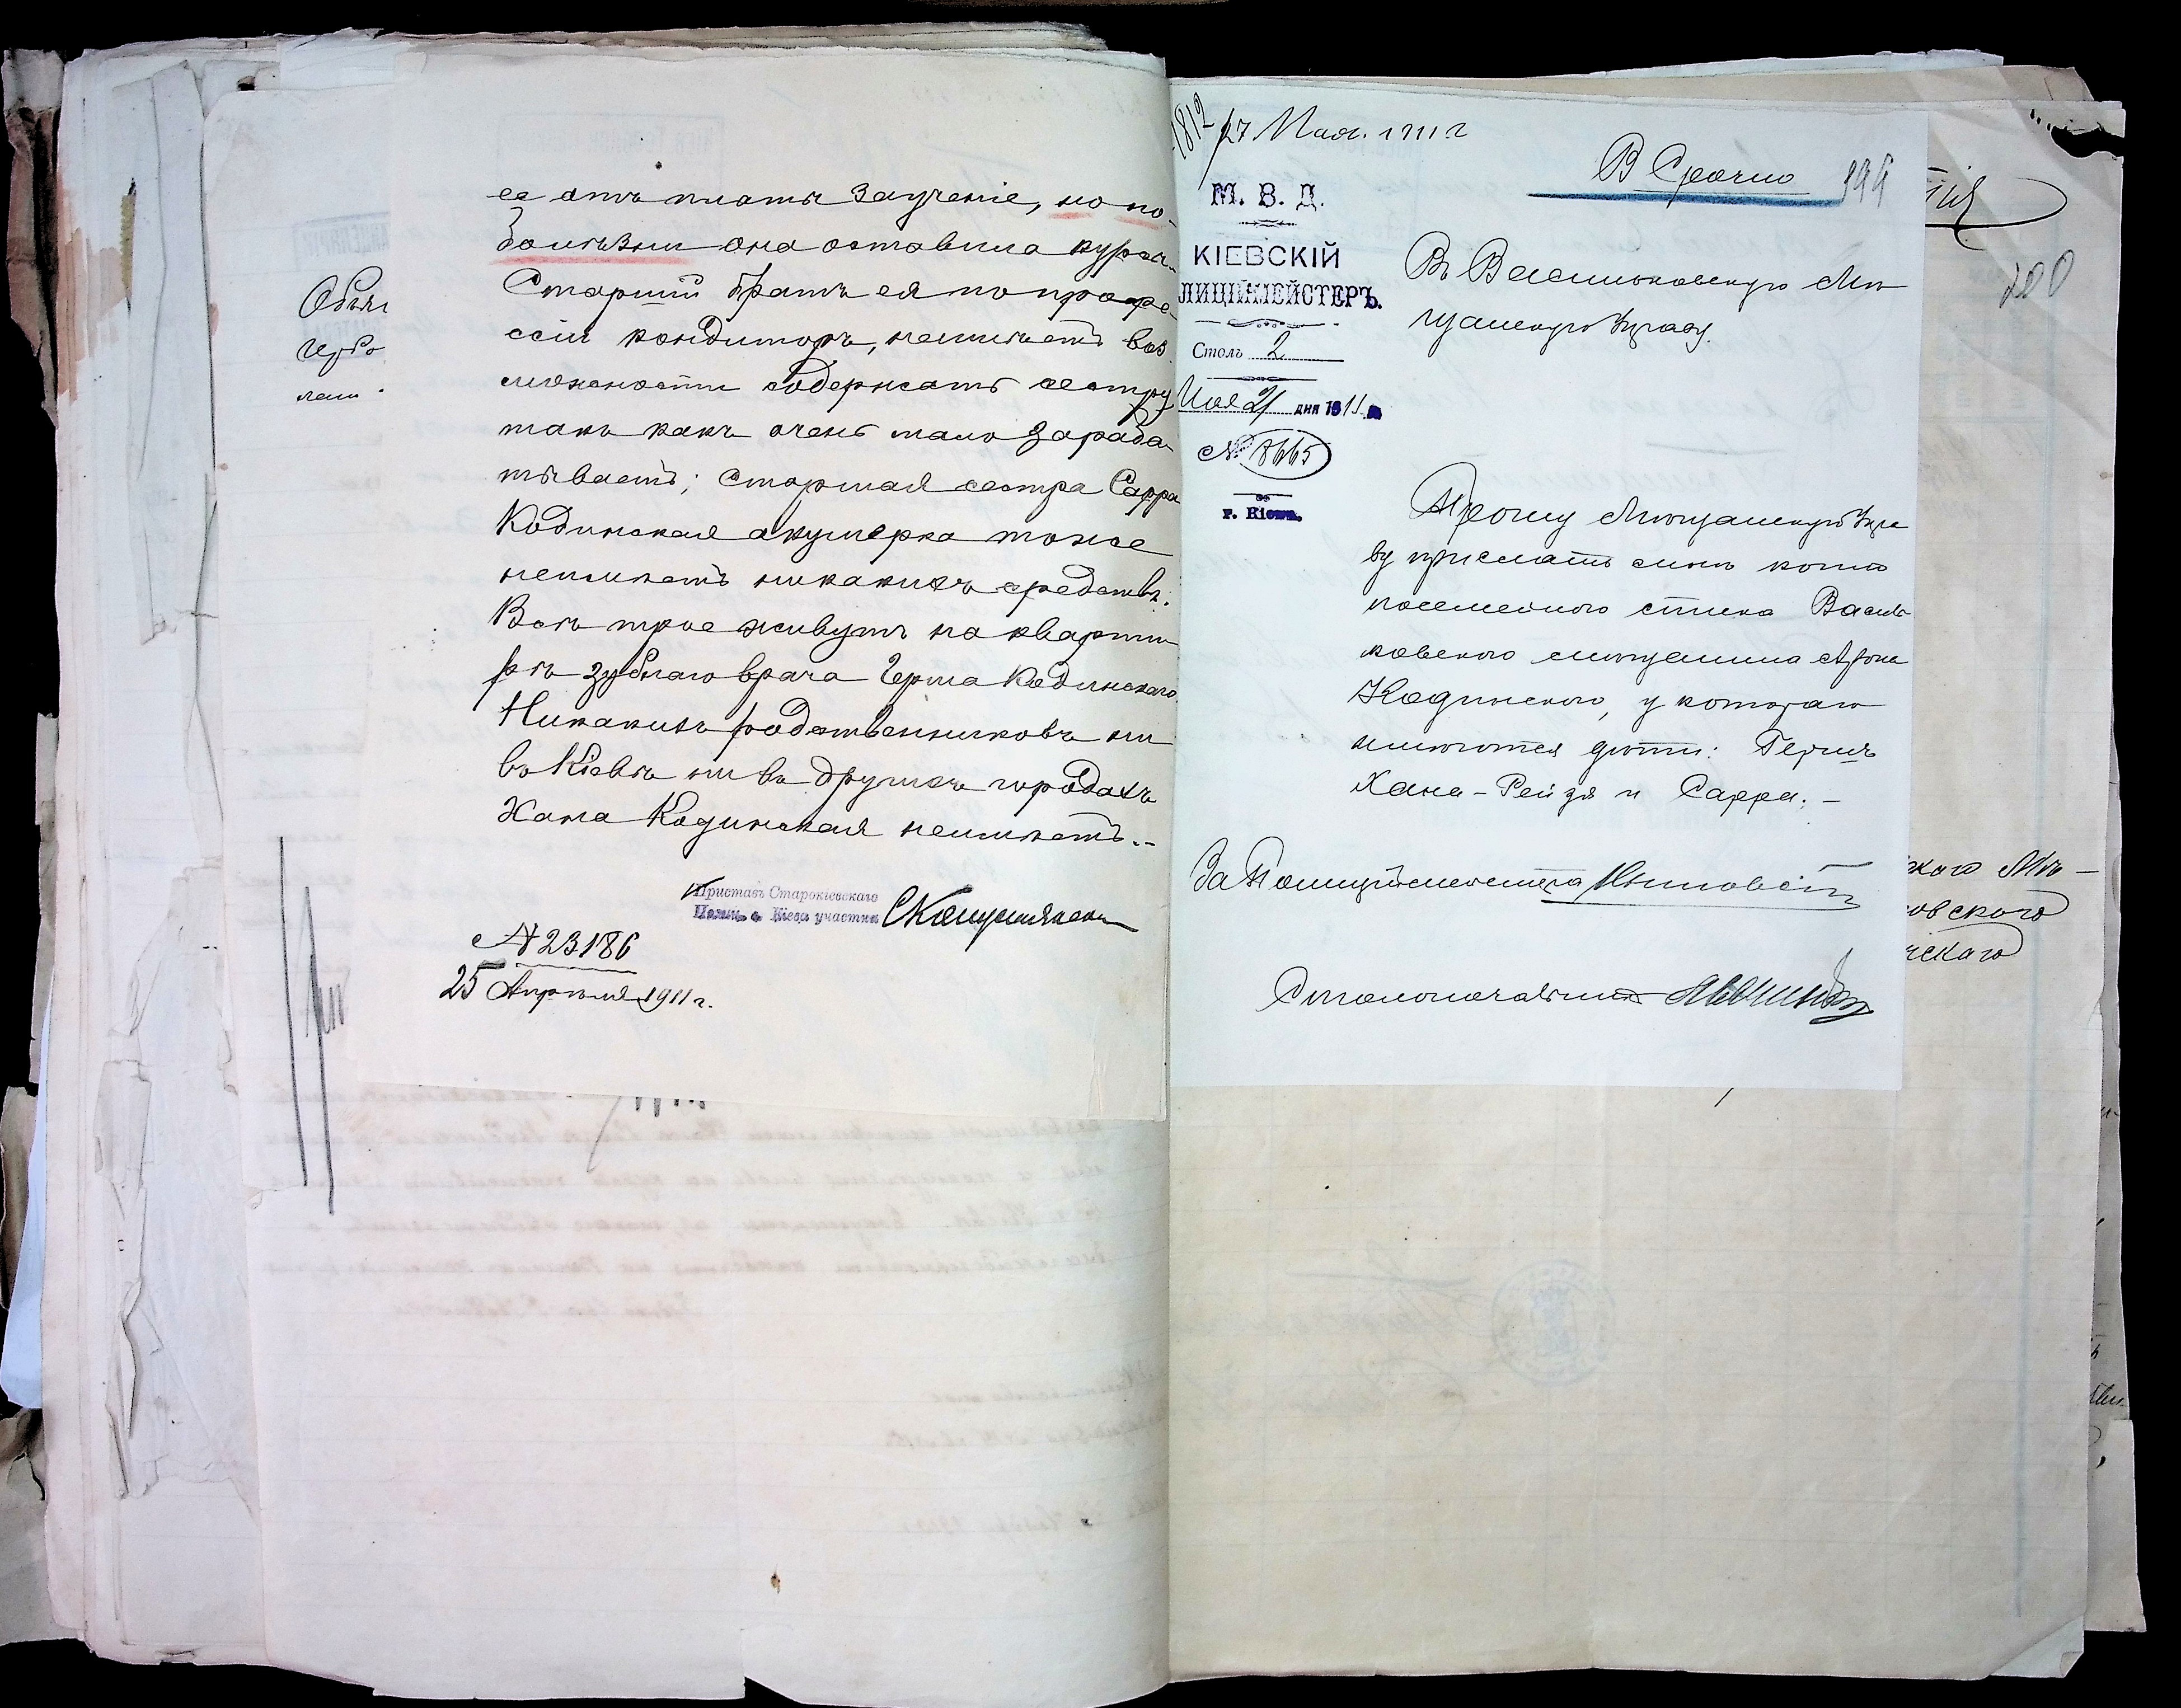 ее отъ платы за ученіе, но по
болѣзни она оставила курсы.
Старшій братъ ея по профе-
ссіи кондиторъ, неимѣетъ воз
можности содержать сестру
такъ какъ очень мало зараба
тываетъ; Старшая сестра Сарра
Кодинская акушерка тоже
неимѣетъ никакихъ средствъ.
Всѣ трое живутъ на кварти
рѣ зубнаго врача Герша Кодинскаго.
Никакихъ родственниковъ ни
въ Кіевѣ ни въ другихъ городахъ
Хана Кодинская неимѣетъ.-
Приставъ Старокіевскаго
Полиц. г. Кіева участка
№ 23186
25 Апрѣля 1911 г.
1812
27 Мая. 1911 г
В Срочно 199
М. В. Д.
КІЕВСКІЙ
ЛИЦІЙМЕЙСТЕРЪ.
Столъ 2
Мая 21 дня 1911 г.
№ 8665
г. Кіевъ.
Въ Васильковскую Мѣ
щанскую Управу.
Прошу Мѣщанскую Упра
ву прислать мнѣ копію
посемейного списка Василь
ковского мѣщанина Арона
Кодинского, у котораго
имѣются дѣти: Гершъ
Хана-Рейзя и Сарра.-
За Полиціймейстера
Столоначальникъ
200
ского Мѣ-
овского
нскаго